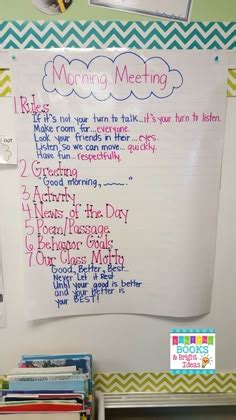 Morning Meeting
1 Rules
If it's not your turn to talk...it's your turn to listen.
Make room for...everyone.
Look your friends in their...eyes.
Listen, so we can move... quickly.
Have fun...respectfully.
2 Greeting
"Good morning, ______."
3 Activity
4 News of the Day
5 Poem/Passage
6 Behavior Goals
7 Our Class Motto
Good, Better, Best...
Never Let it Rest
Until your good is better
and your better is
your BEST!
not
3
BOOKS
& Bright
Ideas